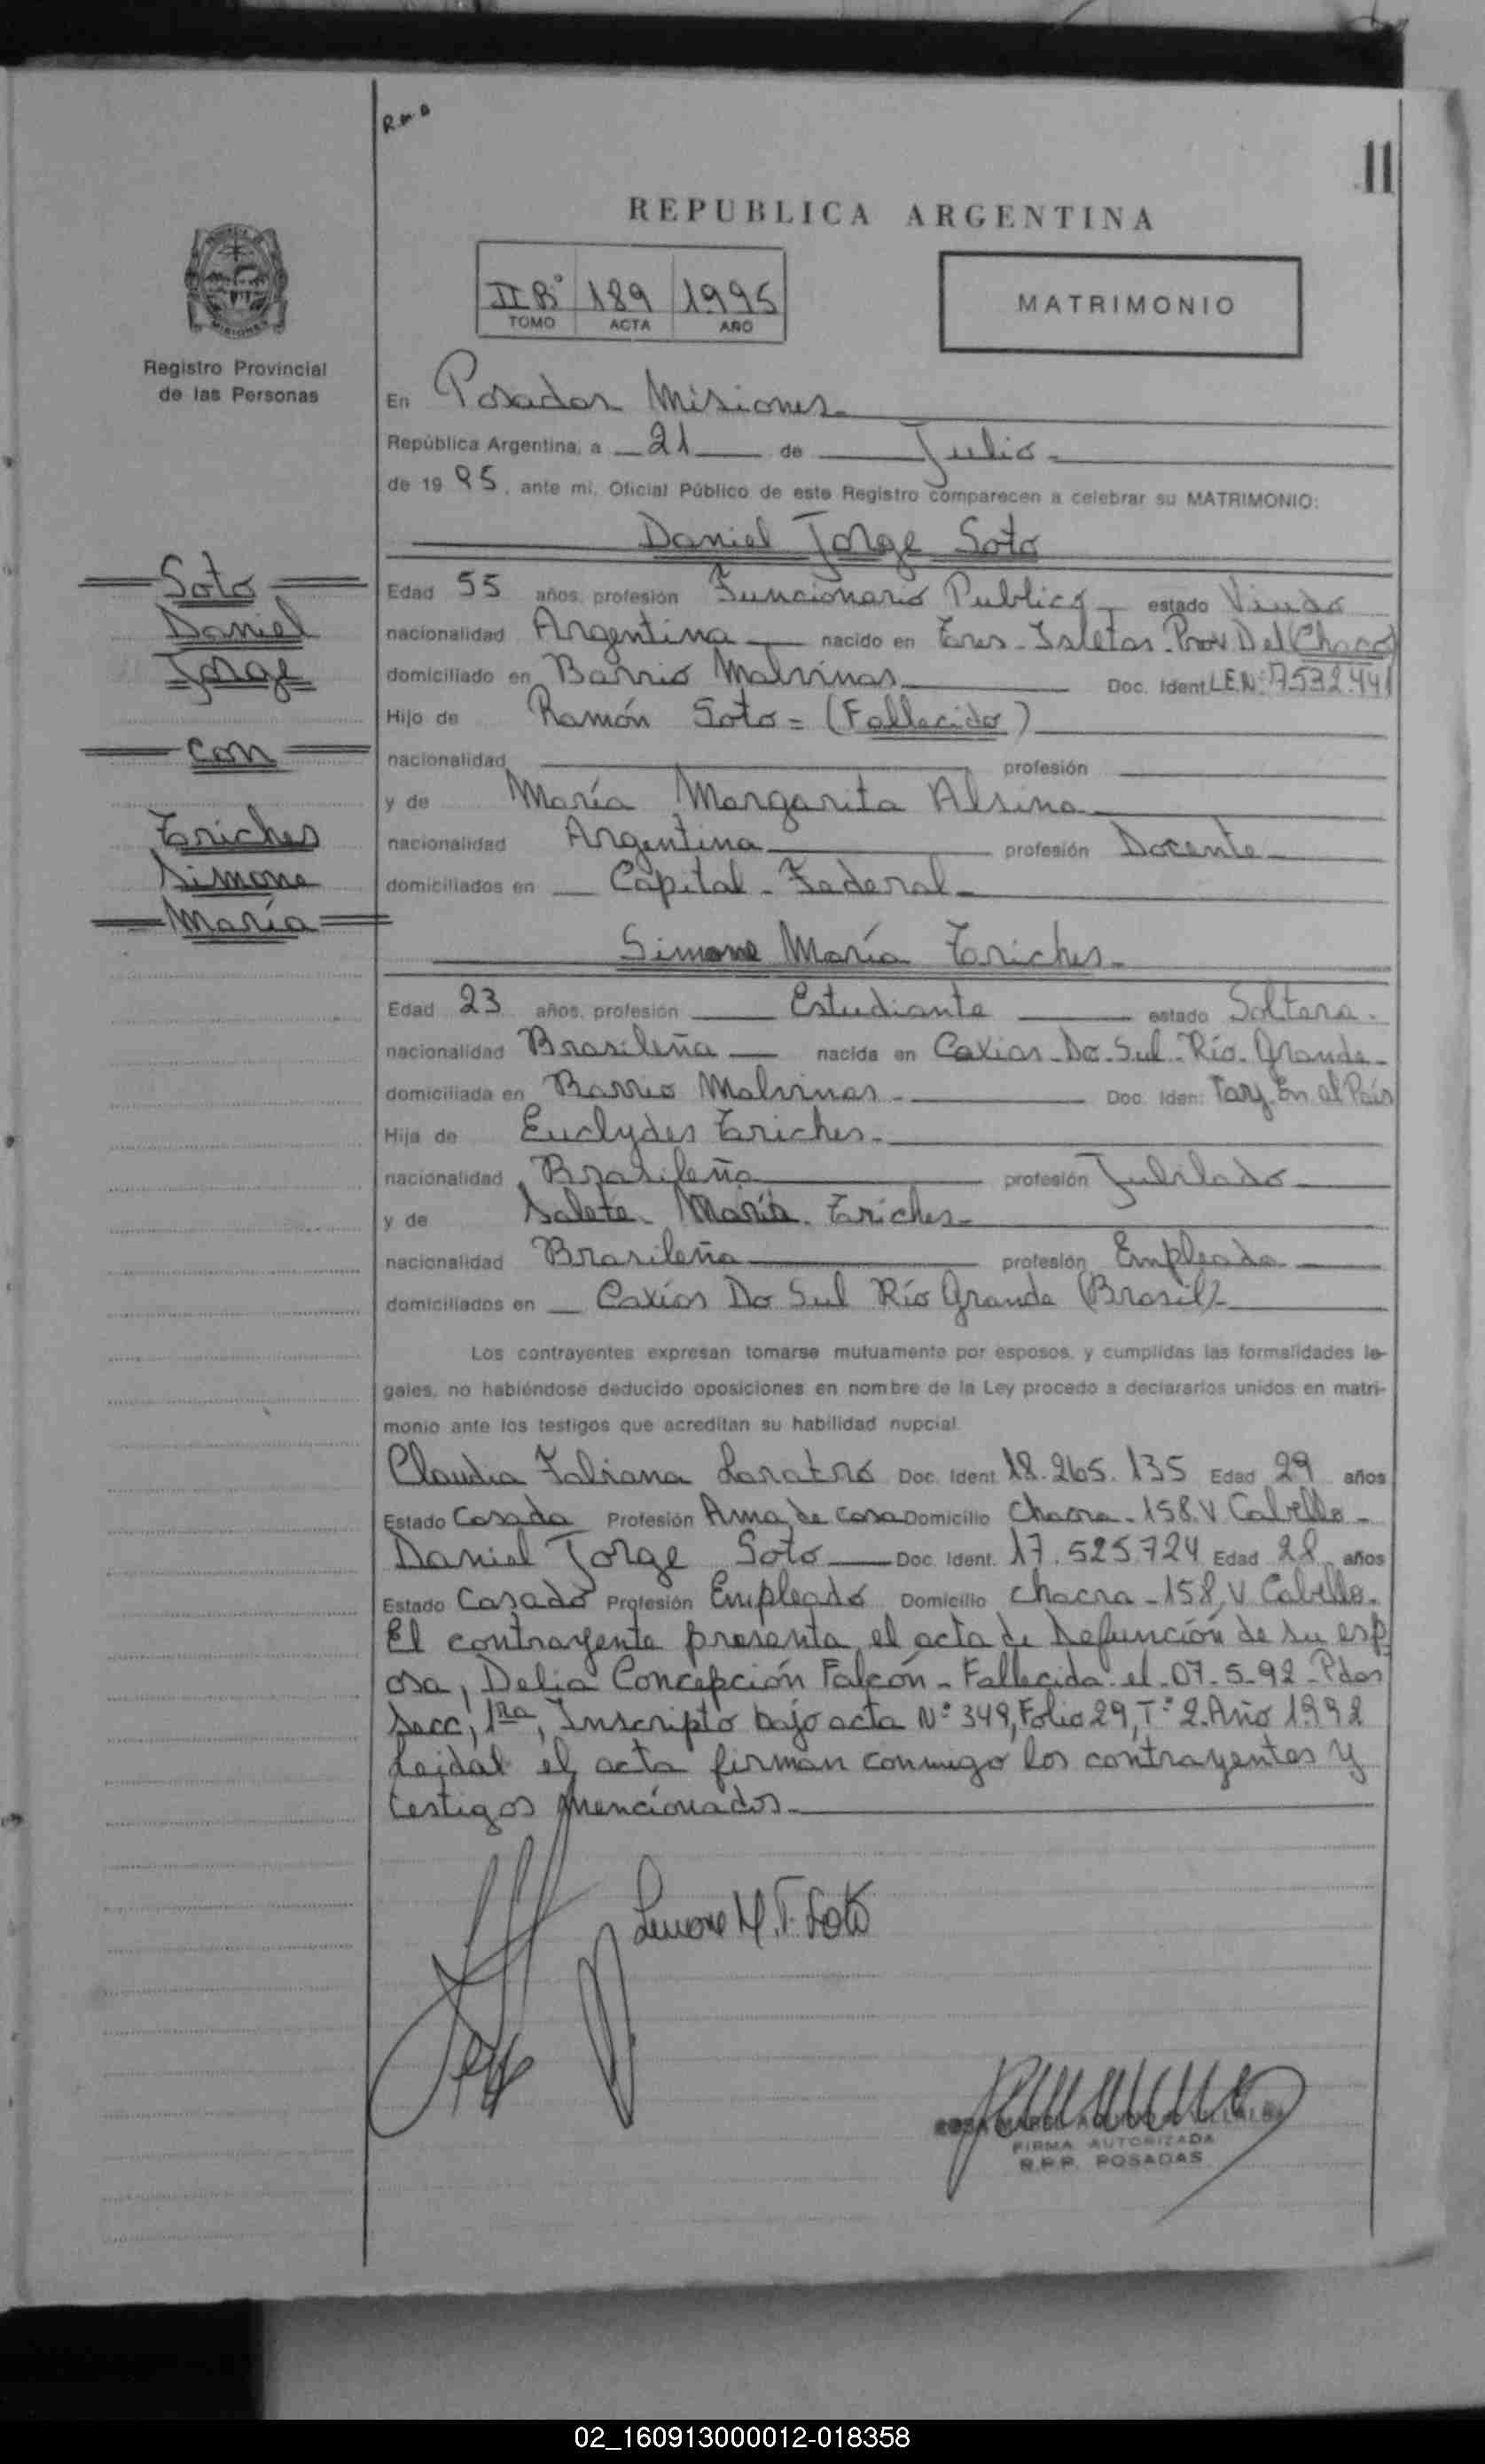 R.M.A
11
REPUBLICA ARGENTINA
II Bº 189 1995
TOMO ACTA AÑO
MATRIMONIO
Registro Provincial
de las Personas
En Posadas Misiones
República Argentina, a 21 de Julio
de 1995, ante mi, Oficial Público de este Registro comparecen a celebrar su MATRIMONIO:
Daniel Jorge Soto
Soto
Daniel
Jorge
con
Triches
Simone
María
Edad 55 años, profesión Funcionario Publico estado Viudo
nacionalidad Argentina nacido en Tres-Isletas-Prov. Del Chaco
domiciliado en Barrio Malvinas Doc. Ident. L.E.Nº 7.532.441
Hijo de Ramón Soto = (Fallecido)
nacionalidad profesión
y de María Margarita Alsina
nacionalidad Argentina profesión Docente
domiciliados en Capital-Federal
Simone María Triches
Edad 23 años, profesión Estudiante estado Soltera.
nacionalidad Brasileña nacida en Caxias-Do-Sul-Río-Grande-
domiciliada en Barrio Malvinas Doc. Iden: Tarj. En el País
Hija de Euclydes Triches
nacionalidad Brasileña profesión Jubilado
y de Salete María Triches
nacionalidad Brasileña profesión Empleada
domiciliados en Caxias Do Sul Río Grande (Brasil)
Los contrayentes expresan tomarse mutuamente por esposos, y cumplidas las formalidades le-
gales, no habiéndose deducido oposiciones en nombre de la Ley procedo a declararlos unidos en matri-
monio ante los testigos que acreditan su habilidad nupcial.
Claudia Fabiana Laratro Doc. Ident. 18.265.135 Edad 29 años
Estado Casada Profesión Ama de casa Domicilio Chacra-158.V Cabello-
Daniel Jorge Soto Doc. Ident. 17.525.724 Edad 28 años
Estado Casado Profesión Empleado Domicilio chacra-158, V Cabello.
El contrayente presenta el acta de Defunción de su esp
osa, Delia Concepción Falcón-Fallecida el-07-5-92-Pdas
Secc, 1ra, Inscripto bajo acta Nº 349, Folio 29, Tº 2. Año 1992
Leida el acta firman conmigo los contrayentes y
testigos mencionados
Simone M.T. Soto
FIRMA AUTORIZADA
R.P.P. POSADAS
02_160913000012-018358